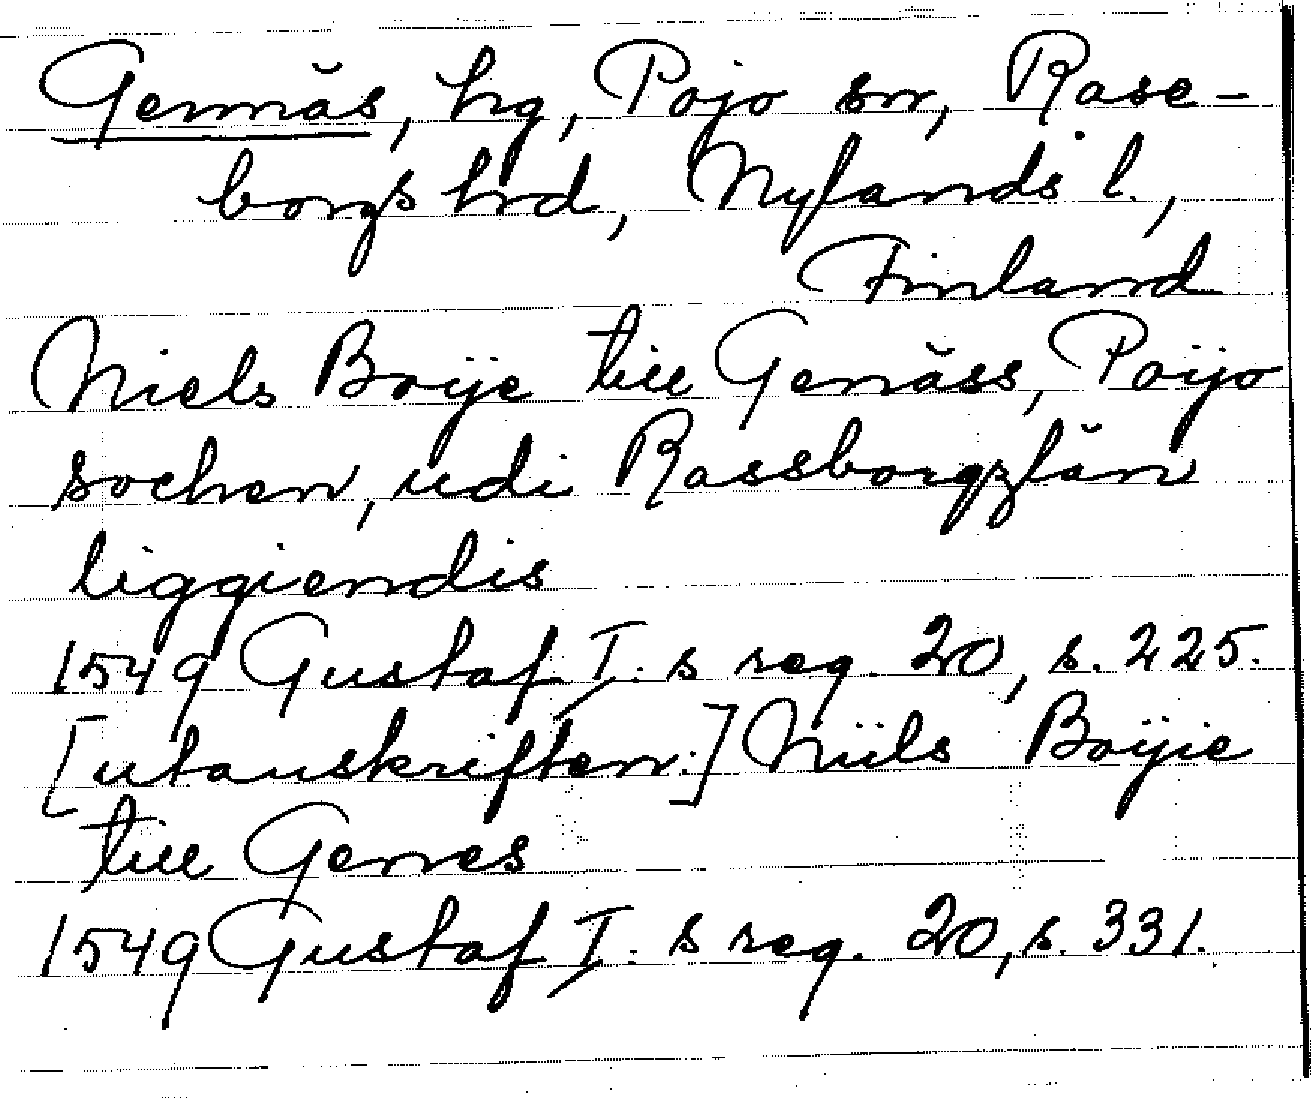 Gennäs, hg, Pojo sn, Rase-
borgs hrd, Nylands l.,
Finland
Niels Boije till Genäss, Poijo
sochen, udi Rassborgzlän
liggiendis
1549 Gustaf I:s reg. 20, s. 225.
[utanskriften:] Niils Boijie
till Genes
1549 Gustaf I:s reg. 20, s. 331.